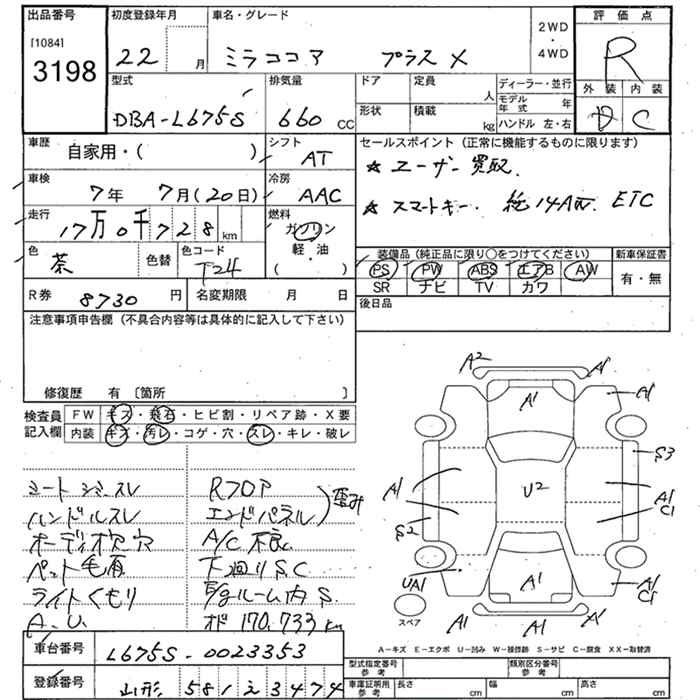 出品番号 初度登録年月 車名・グレード 2WD・4WD 評価点
[1084] 3198 22 月 ミラココア プラス X R
型式 排気量 ドア 定員 人 ディーラー・並行 外装 内装
DBA-L675S 660 CC 形状 積載 kg モデル年式 年 ハンドル 左・右 D C
車歴 自家用・( ) シフト AT セールスポイント (正常に機能するものに限ります)
車検 7年 7月(20日) 冷房 AAC ★ ユーザー買取.
走行 17万0千728km 燃料 ガソリン・軽油 ( ) ★ スマートキー. 純14AW. ETC
色 茶 色替 色コード T24 装備品 (純正品に限り○をつけてください) 新車保証書
PS PW ABS エアB AW 有・無
SR ナビ TV カワ
R券 8730円 名変期限 月 日 後日品
注意事項申告欄 (不具合内容等は具体的に記入して下さい)
修復歴 有 〔箇所 〕
検査員記入欄 FW キズ・飛石・ヒビ割・リペア跡・X要
内装 キズ・汚レ・コゲ・穴・スレ・キレ・破レ
シートシミスレ Rフロア
ハンドルスレ エンドパネル 歪み
オーディオ欠穴 A/C不良
ペット毛有 下廻りS.C
ライトくもり E/gルーム内S.
A.U. オド170,733km
A2 A1 A1 A1
S3
A1 U2 A1 C1
S2
UA1 A1 A1 C1
スペア A1 A1 A1
A-キズ E-エクボ U-凹み W-補修跡 S-サビ C-腐食 XX-取替済
車台番号 L675S-0023353
登録番号 山形 581 え 3474
型式指定番号 参考 類別区分番号 参考
車庫証明用 参考 長さ cm 幅 cm 高さ cm